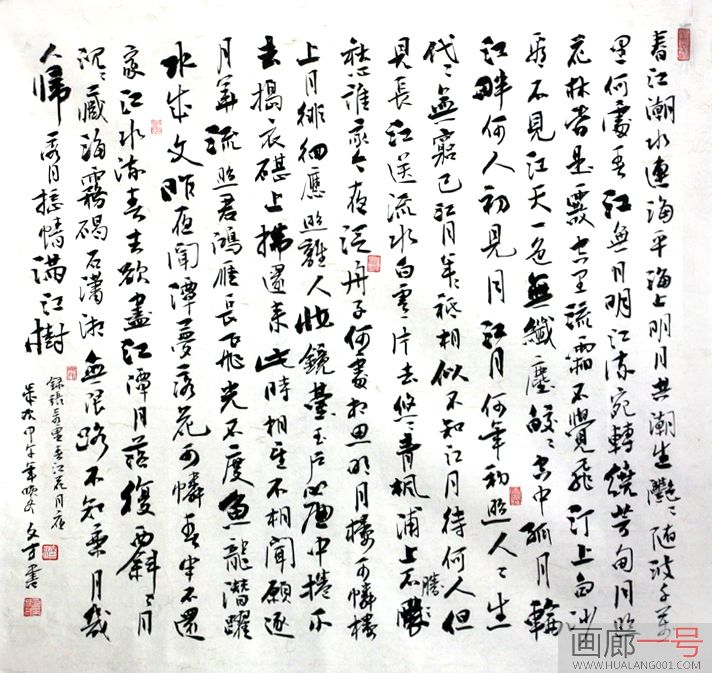 春江潮水連海平海上明月共潮生灩〻隨波千萬
里何處春江無月明江流宛轉繞芳甸月照
花林皆是霰空里流霜不覺飛汀上白沙
看不見江天一色無纖塵皎〻空中孤月輪
江畔何人初見月江月何年初照人〻生
代〻無窮已江月年〻祗相似不知江月待何人但
見長江送流水白雲一片去悠〻青楓浦上不勝
愁誰家今夜泛舟子何處相思明月樓可憐樓
上月徘徊應照離人妝鏡臺玉户簾中捲不
去搗衣砧上拂還來此時相望不相聞願逐
月華流照君鴻雁長飛光不度魚龍潛躍
水成文昨夜閒潭夢落花可憐春半不還
家江水流春去欲盡江潭月落復西斜〻月
沉〻藏海霧碣石瀟湘無限路不知乘月幾
人歸落月搖情滿江樹
錄張若虛春江花月夜
歲次甲午年晚冬文方書
画廊一号
WWW.HUALANG001.COM